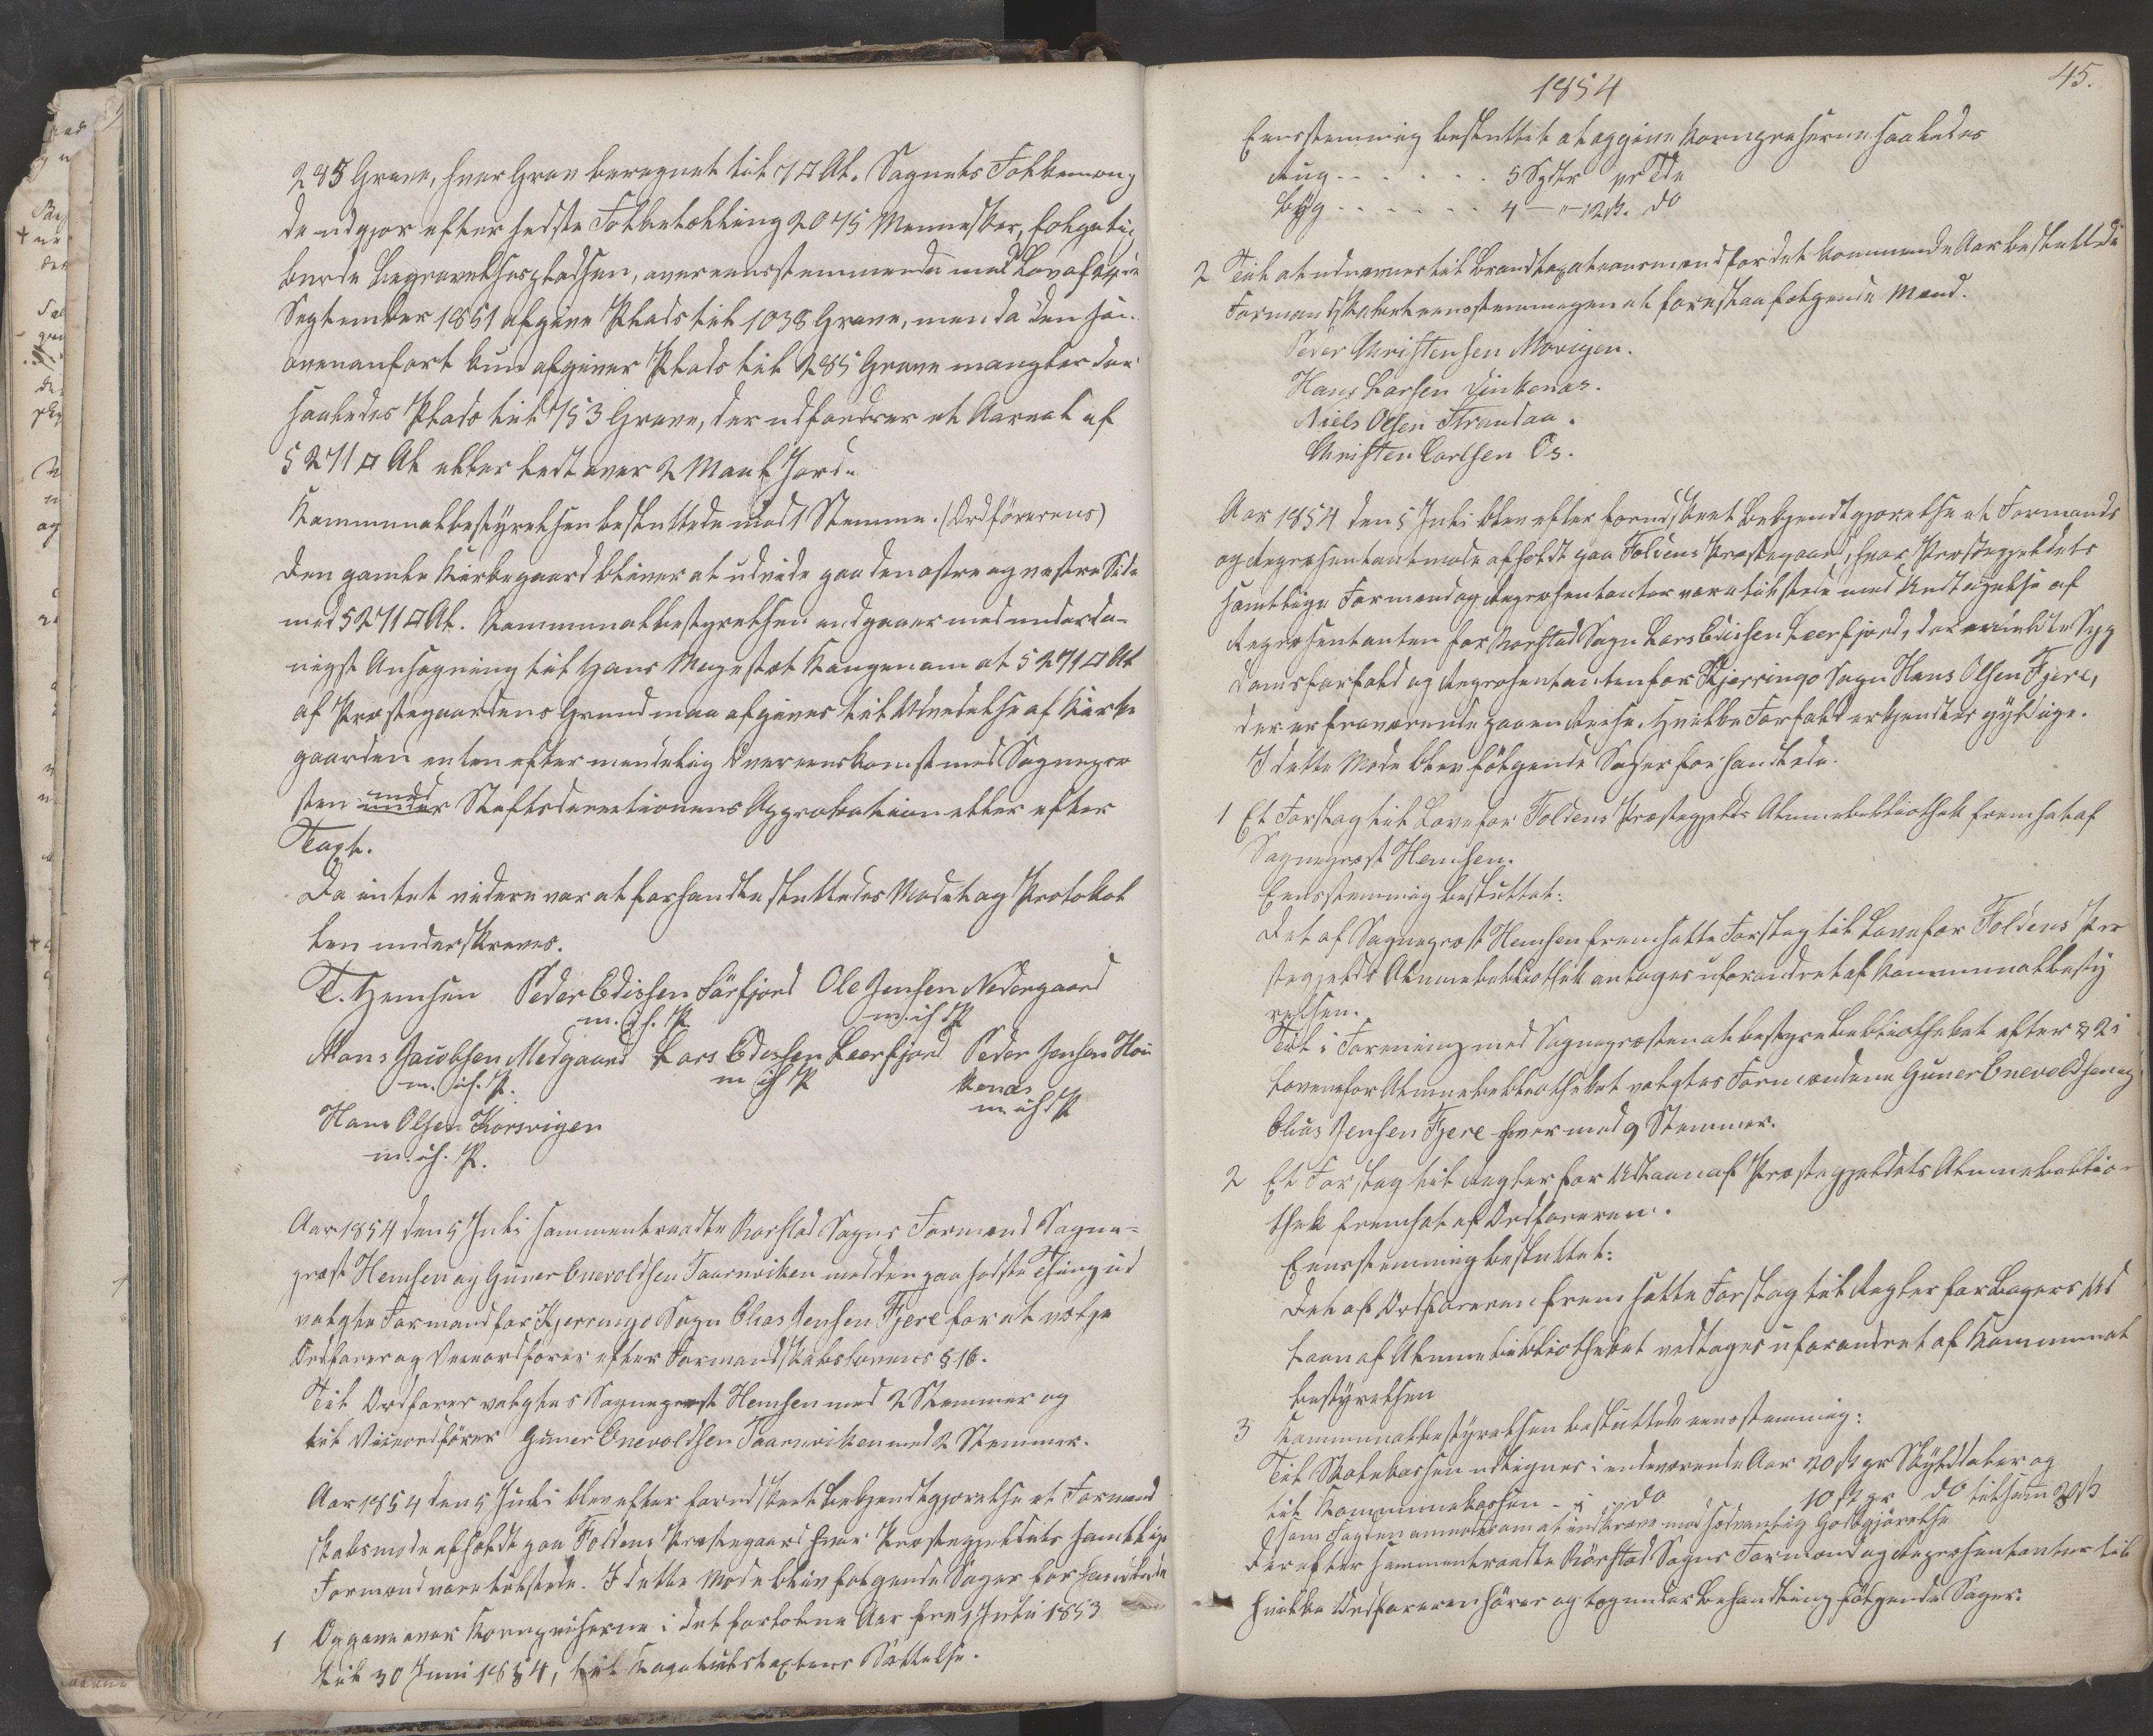 285 Grave, hver Grav beregnet til 7 □ Al. Sognets Folkemæng
de udgjør efter sidste Folketælling 2075 Mennesker, følgelig
burde Begravelsespladsen, overeensstemmende med Lov af
September 1851 afgive Plads til 1038 Grave, men da den som
ovenanført kun afgiver Plads til 285 Grave mangler der
saaledes Plads til 753 Grave, der udfordrer et Aareal af
5271 □ Al eller lidt over 2 Maal Jord.
Kommunalbestyrelsen besluttede mod 1 Stemme. (Ordførerens)
Den gamle Kirkegaard bliver at udvide paa den østre og vestre Side
med 5271 □ Al. Kommunalbestyrelsen andgaaer med underda-
nigst Ansøgning til Hans Majestæt Kongen om at 5271 □ Al
af Præstegaardens Grund maa afgives til Udvidelse af Kirke
gaarden enten efter mindelig Overeenskomst med Sognepræ
sten med under Stiftsdirectionens Approbation eller efter
Taxt.
Da intet videre var at forhandle sluttedes Mødet og Protokol
len underskreves.
T. Hemsen Peder Edissen Sørfjord Ole Jensen Nedergaard
m. i h. P. m. i h P
Hans Jacobsen Medgaard Lars Edissen Leerfjord Peder Jensen Hou
m. i h. P. m i h P kenæs
Hans Olsen Korsvigen m i h P
m. i h. P.
Aar 1854 den 5 Juli sammentraadte Rørstad Sogns Formænd Sogne-
præst Hemsen og Guner Enevoldsen Taarnviken med den paa sidste Thing ud
valgte Formand for Kjerringø Sogn Elias Jensen Fjere for at vælge
Ordfører og Viceordfører efter Formandskabslovens § 16.
Til Ordfører valgtes Sognepræst Hemsen med 2 Stemmer og
til Viceordfører Guner Enevoldsen Taarnviken med 2 Stemmer.
Aar 1854 den 5 Juli blev efter forudskeet Bekjendtgjørelse et Formand
skabsmøde afholdt paa Foldens Præstegaard hvor Præstegjeldets samtlige
Formænd vare tilstede. I dette Møde blev følgende Sager forhandlede
1 Opgave over Kornpriserne i det forløbne Aar fra 1 Juli 1853
til 30 Juni 1854, til Kapitelstaxtens Sættelse.
1854
45.
Eensstemmig besluttet at opgive Kornpriserne saaledes
Rug . . . . . . 5 Spdlr pr Tde
Byg . . . . . . 4 — " — 12 ß. do
2 Til at udnævnes til Brandtaxationsmænd for det kommende Aar besluttede
Formandskabet eensstemmigen at forestaa følgende Mænd.
Peder Christensen Movigen.
Hans Larsen Vinkenes.
Niels Olsen Strandaa.
Christen Carlsen Os.
Aar 1854 den 5 Juli blev efter forudskeet Bekjendtgjørelse et Formands
og Repræsentantmøde afholdt paa Foldens Præstegaard, hvor Præstegjeldets
samtlige Formænd og Repræsentanter vare tilstede med Undtagelse af
Repræsentanten for Rørstad Sogn Lars Edissen Leerfjord, der anmeldte Syg
domsforfald og Repræsentanten for Kjerringø Sogn Hans Olsen Fjere,
der er fraværende paa en Reise. Hvilke Forfald erkjendtes gyldige.
I dette Møde blev følgende Sager forhandlede.
1 Et Forslag til Love for Foldens Præstegjelds Almuebibliothek fremsat af
Sognepræst Hemsen.
Eensstemmig besluttet:
Det af Sognepræst Hemsen fremsatte Forslag til Love for Foldens Præ
stegjelds Almuebibliothek antages uforandret af Kommunalbesty
relsen.
Til i Forening med Sognepræsten at bestyre Bibliotheket efter § 2 i
Lovene for Almuebibliotheket valgtes Formændene Guner Enevoldsen og
Elias Jensen Fjere hver med 9 Stemmer.
2 Et Forslag til Regler for Udlaan af Præstegjeldets Almuebiblio-
thek fremsat af Ordføreren.
Eensstemmig besluttet:
Det af Ordføreren fremsatte Forslag til Regler for Bøgers Ud
laan af Almuebibliotheket vedtages uforandret af Kommunal
bestyrelsen
3 Kommunalbestyrelsen besluttede eensstemmig:
Til Skolekassen udlignes i indeværende Aar 20 ß pr Skylddaler og
til Kommunekassen - i do 10 ß pr do tilsam 30 ß
som Fogden anmodes om at indkræve mod sædvanlig Godtgjørelse
Derefter sammentraadte Rørstad Sogns Formænd og Repræsentanter til
hvilke Ordføreren hører og tog under Behandling følgende Sager.